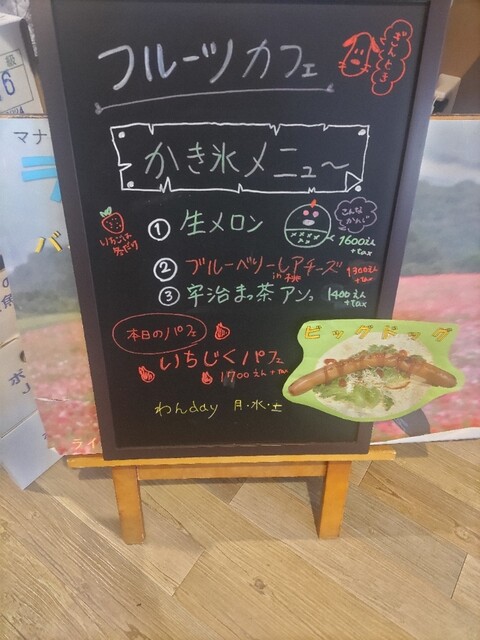 フルーツカフェ
かき氷メニュ～
① 生メロン
こんな
かんじ
1600えん
+tax
いちごは
② ブルーベリーレアチーズ 1300えん
in 桃 +tax
③ 宇治まっ茶アンコ 1400えん
+tax
本日のパフェ
いちじくパフェ
1700えん+tax
ビッグドッグ
わんday 月・水・土
マナ